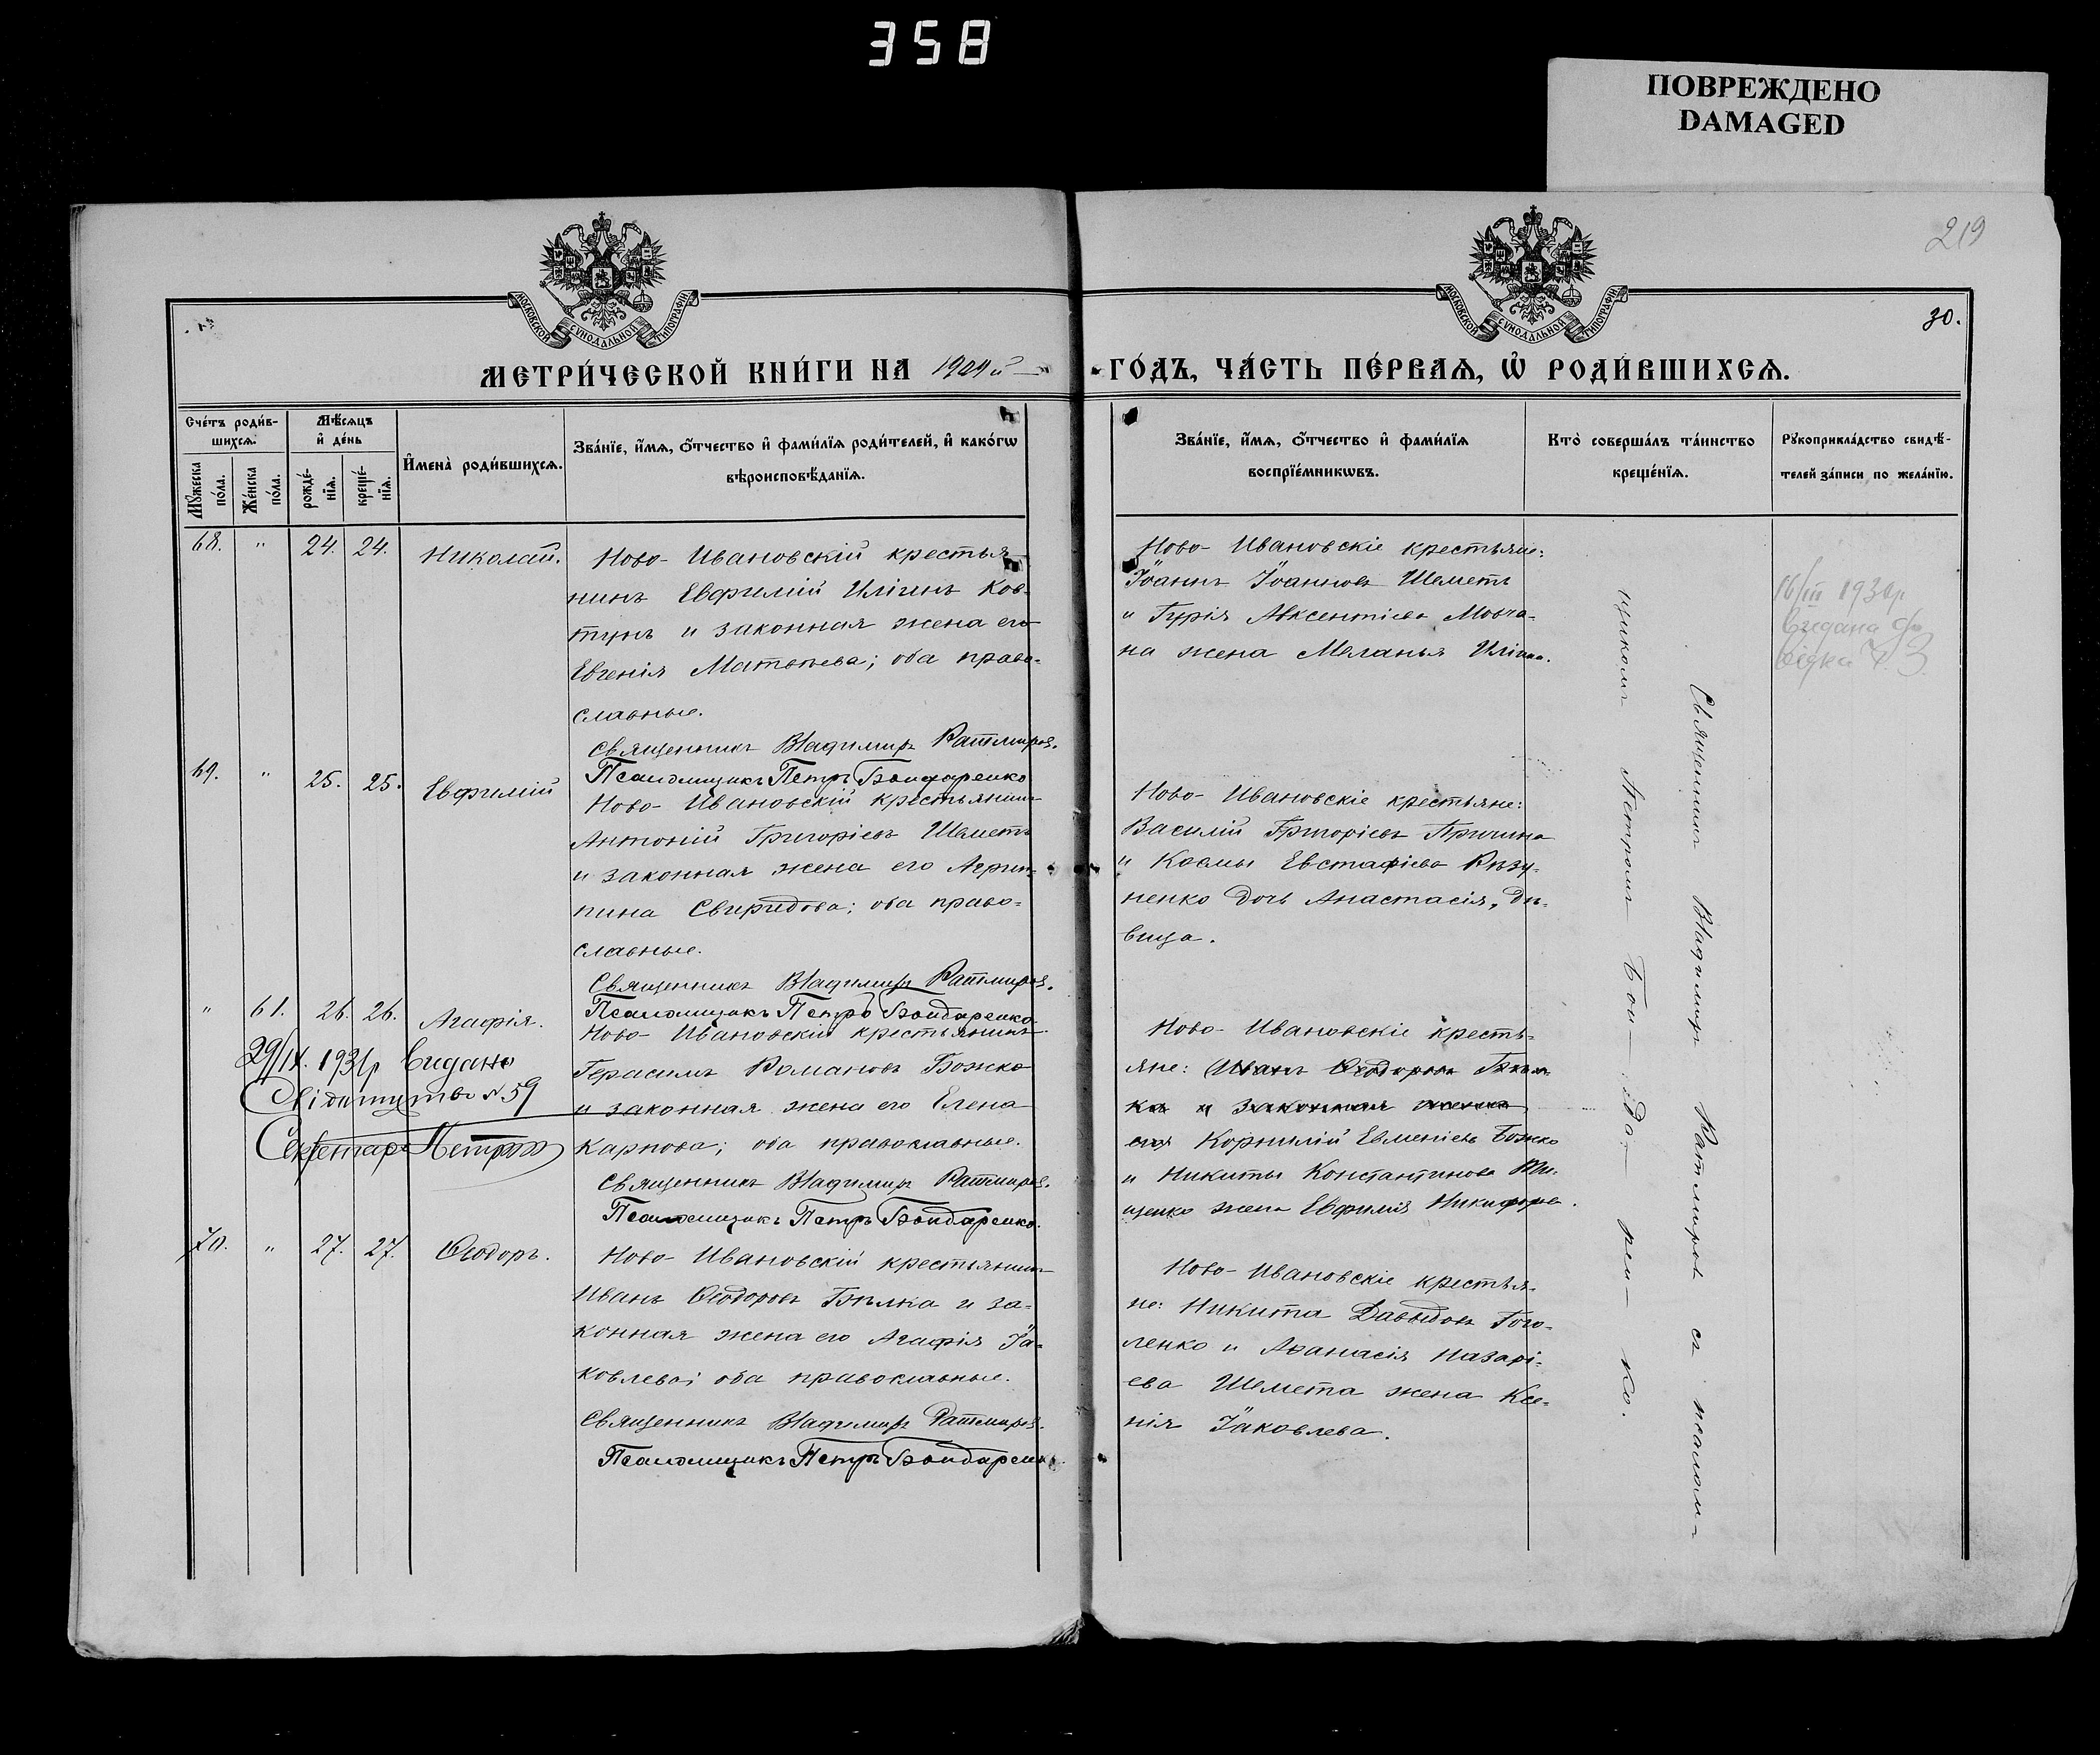 358
ПОВРЕЖДЕНО
DAMAGED
219
30.
МОСКОВСКОЙ СѴНОДАЛЬНОЙ ТИПОГРАФІИ
МОСКОВСКОЙ СѴНОДАЛЬНОЙ ТИПОГРАФІИ
МЕТРИ́ЧЕСКОЙ КНИ́ГИ НА 1909 й
ГО́ДЪ, ЧА́СТЬ ПЕ́РВАѦ, Ѡ҆ РОДИ́ВШИХСѦ.
Сче́тъ роди́в-
шихсѧ.
Мѣ́сѧцъ
и҆ де́нь
Мꙋ́жеска
по́ла.
Же́нска
по́ла.
рожде́-
нїѧ.
креще́-
нїѧ.
И҆мена̀ роди́вшихсѧ.
Зва́нїе, и҆́мѧ, о҆́тчество и҆ фами́лїѧ роди́телей, и҆ како́гѡ
вѣроисповѣ́данїѧ.
Зва́нїе, и҆́мѧ, о҆́тчество и҆ фами́лїѧ
воспрїе́мникѡвъ.
Кто̀ соверша́лъ та́инство
креще́нїѧ.
Рꙋкоприкла́дство свидѣ́-
телей за́писи по жела́нїю.
68. " 24. 24. Николай.
Ново-Ивановскій крестья-
нинъ Евфимій Илiинъ Ков-
тунъ и законная жена его
Евгенія Матвѣева; оба право-
славные.
Священникъ Владимиръ Ратмировъ.
Псаломщикъ Петръ Бондаренко
Ново-Ивановскіе крестьяне:
Іоаннъ Іоанновъ Шеметъ
и Гурія Авксентіева Мовча-
на жена Меланья Иліина.
16/III 1930р
Видана до
відка Ч 3
69. " 25. 25. Евфимій
Ново-Ивановскій крестьянинъ
Антоній Григоріевъ Шеметъ
и законная жена его Агрип-
пина Свиридова; оба право-
славные.
Священникъ Владимиръ Ратмировъ.
Псаломщикъ Петръ Бондаренко
Ново-Ивановскіе крестьяне:
Василій Григоріевъ Причина
и Космы Евстафіева Рѣзу-
ненко дочь Анастасія, дѣ-
вица.
" 61. 26. 26. Агафія.
29/IX. 1931р Видано
Свідоцтво № 59
Секретарь
Ново-Ивановскій крестьянинъ
Герасимъ Романовъ Божко
и законная жена его Елена
Карпова; оба православные.
Священникъ Владимиръ Ратмировъ.
Псаломщикъ Петръ Бондаренко.
Ново-Ивановскіе кресть-
яне: Иванъ Ѳеодоровъ Бѣл-
ка и законная жена
его Корнилій Евменіевъ Божко
и Никиты Константинова
щенко жена Евфимія Никифорова.
70. " 27. 27. Ѳеодоръ.
Ново-Ивановскій крестьянинъ
Иванъ Ѳеодоровъ Бѣлка и за-
конная жена его Агафія Іа-
ковлева; оба православные.
Священникъ Владимиръ Ратмировъ.
Псаломщикъ Петръ Бондаренко.
Ново-Ивановскіе крестья-
не: Никита Давыдовъ Гого-
ленко и Аѳанасія Назарі-
ева Шемета жена Ксе-
нія Іаковлева.
Священникъ Владимиръ Ратмировъ съ псалом-
щикомъ Петромъ Бон-да-рен-ко.